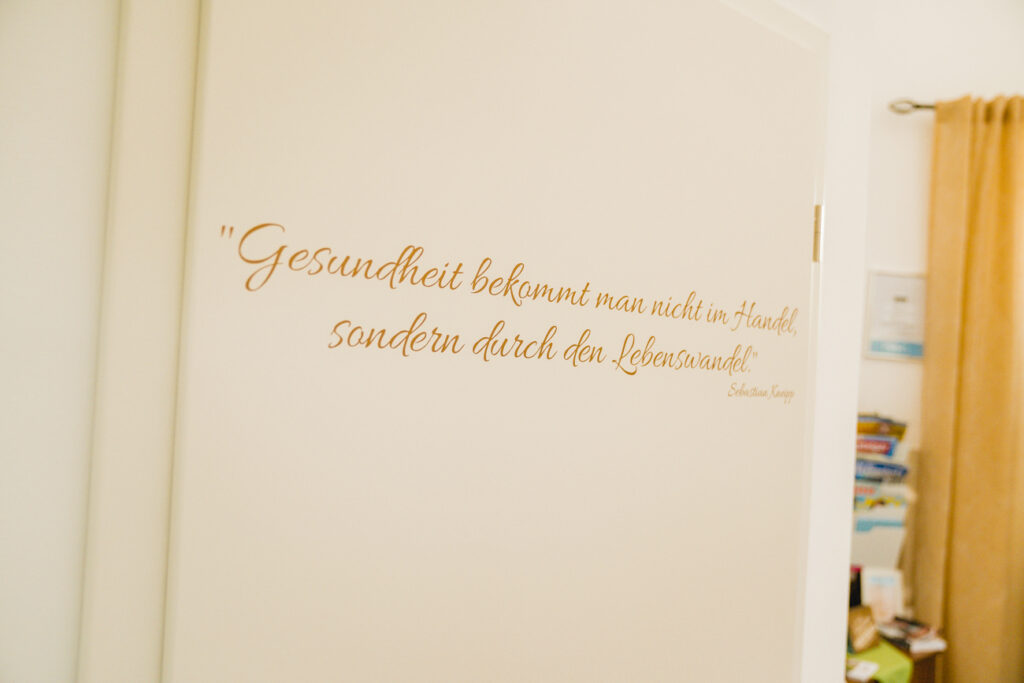 "Gesundheit bekommt man nicht im Handel,
sondern durch den Lebenswandel."
Sebastian Kneipp